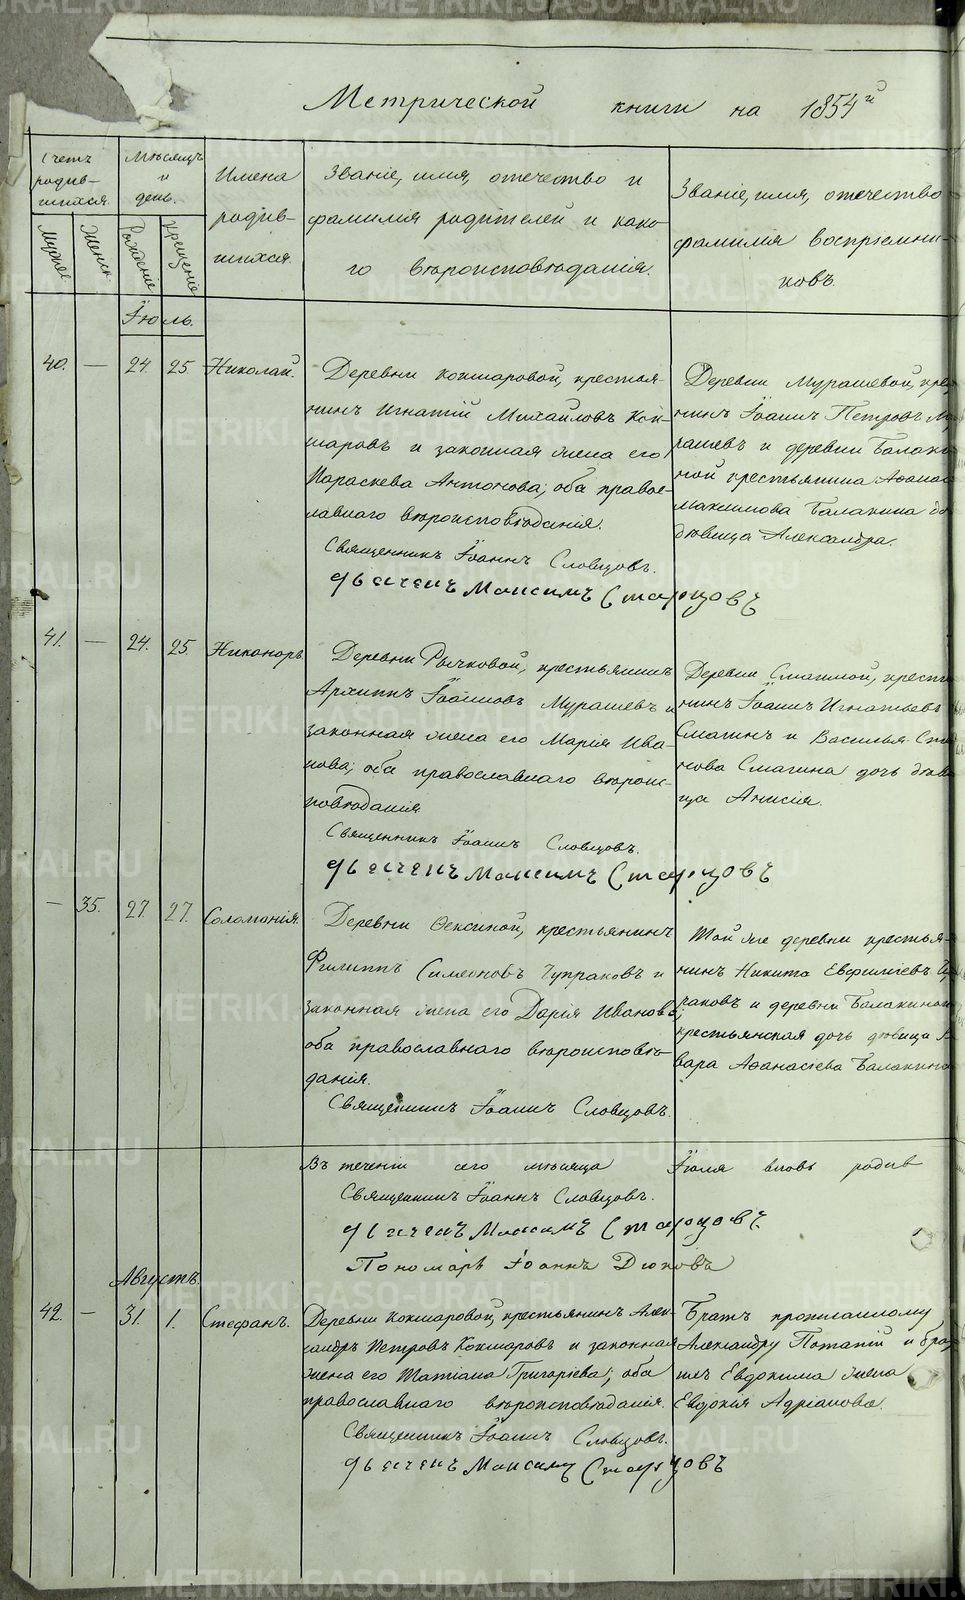 Метрической книги на 1854й
Счетъ родив-шихся.
Мужее
Женск.
Мѣсяцъ и день.
Рожденіе
Крещеніе
Имена родив-шихся.
Званіе, имя, отечество и
фамилія родителей и како-
го вѣроисповѣданія.
Званіе, имя, отечество
фамилія воспріемни-
ковъ.
Іюль.
40. — 24. 25 Николай.
Деревни Кокшаровой, крестья-
нинъ Игнатій Михайловъ Кок-
шаровъ и законная жена его
Параскева Антонова; оба право-
славнаго вѣроисповѣданія.
Священникъ Іоаннъ Словцовъ.
Дьячекъ Максимъ Старцовъ
Деревни Мурашевой, кре
нинъ Іоаннъ Петровъ Му
рашевъ и деревни Балаки
ной крестьянина Афанас
Максимова Балакина до
дѣвица Александра.
41. — 24. 25. Никаноръ.
Деревни Рычковой, крестьянинъ
Архиппъ Іоанновъ Мурашевъ и
законная жена его Марія Ива-
нова; оба православнаго вѣроис-
повѣданія
Священникъ Іоаннъ Словцовъ.
Дьячекъ Максимъ Старцовъ
Деревни Смагиной, крестья
нинъ Іоаннъ Игнатьевъ
Смагинъ и Василья
нова Смагина дочь дѣви
ца Анисія.
— 35. 27. 27. Соломонія.
Деревни Ѳексиной, крестьянинъ
Филиппъ Симеоновъ Чупраковъ и
законная жена его Дарія Иванова;
оба православнаго вѣроисповѣ-
данія.
Священникъ Іоаннъ Словцовъ.
Той же деревни крестья-
нинъ Никита Евфиміевъ Чу
праковъ и деревни Балакиной
крестьянская дочь дѣвица В
вара Афанасіева Балакина
Въ теченіи сего мѣсяца Іюля вновь родив
Священникъ Іоаннъ Словцовъ.
Дьячекъ Максимъ Старцовъ
Пономарь Іоаннъ Дюковъ
Августъ.
42. — 31. 1. Стефанъ.
Деревни Кокшаровой, крестьянинъ Алек-
сандръ Петровъ Кокшаровъ и законная
жена его Татіана Григоріева; оба
православнаго вѣроисповѣданія.
Священникъ Іоаннъ Словцовъ.
Дьячекъ Максимъ Старцовъ
Братъ прописанному
Александру Потапій и бра
 тъ Евдокима жена
Евдокія Адріанова.
METRIKI.GASO-URAL.RU